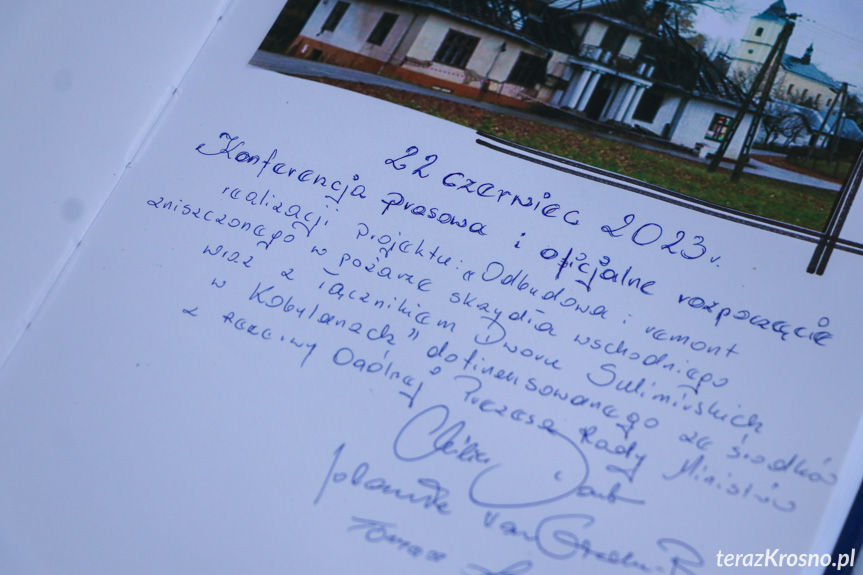 22 czerwiec 2023 r.
Konferencja prasowa i oficjalne rozpoczęcie
realizacji projektu: „Odbudowa i remont
zniszczonego w pożarze skrzydła wschodniego
wraz z łącznikiem Dworu Sulimirskich
w Kobylanach" dofinansowanego ze środków
z rezerwy Ogólnej Prezesa Rady Ministrów
Jolanta
Tomasz
terazKrosno.pl